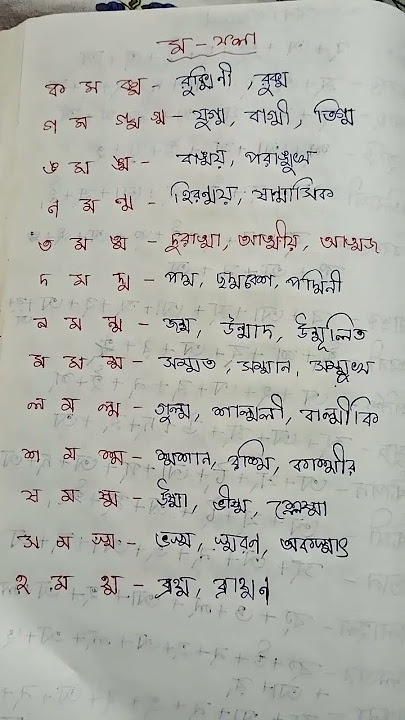 ম - ফলা
ক ম ক্ম - রুক্মিনী, রুক্ম
গ ম গ্ম গ্ম - যুগ্ম, বাগ্মী, তিগ্ম
ঙ ম ঙ্ম - বাঙ্ময়, পরাঙ্মুখ
ণ ম ণ্ম - হিরণ্ময়, ষাণ্মাসিক
ত ম ত্ম - দুরাত্মা, আত্মীয়, আত্মজ
দ ম দ্ম - পদ্ম, ছদ্মবেশ, পদ্মিনী
ন ম ন্ম - জন্ম, উন্মাদ, উন্মূলিত
ম ম ম্ম - সম্মত, সম্মান, সম্মুখ
ল ম ল্ম - গুল্ম, শাল্মলী, বাল্মীকি
শ ম শ্ম - শ্মশান, রশ্মি, কাশ্মীর
ষ ম ষ্ম - উষ্মা, ভীষ্ম, শ্লেষ্মা
স ম স্ম - ভস্ম, স্মরণ, অকস্মাৎ
হ ম হ্ম - ব্রহ্ম, ব্রাহ্মন